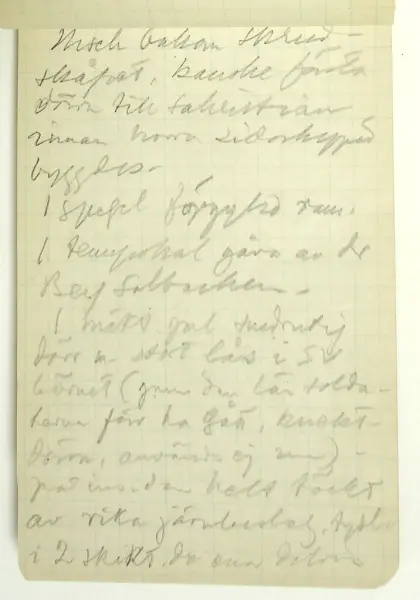 Nisch bakom skrud-
skåpet, kanske första
dörr till sakristian
innan norra sidoskeppet
byggdes.
1 spegel förgylld ram.
1 tempokal gåva av dr
Berg Salbacken.
1 mkt gul snedrutig
dörr m. stort lås i SV
hörnet (genom den lär solda-
terna förr ha gått, knekt-
dörren, användes ej nu) -
på insidan helt täckt
av rika järnbeslag,
i 2 skikt, då ena delen